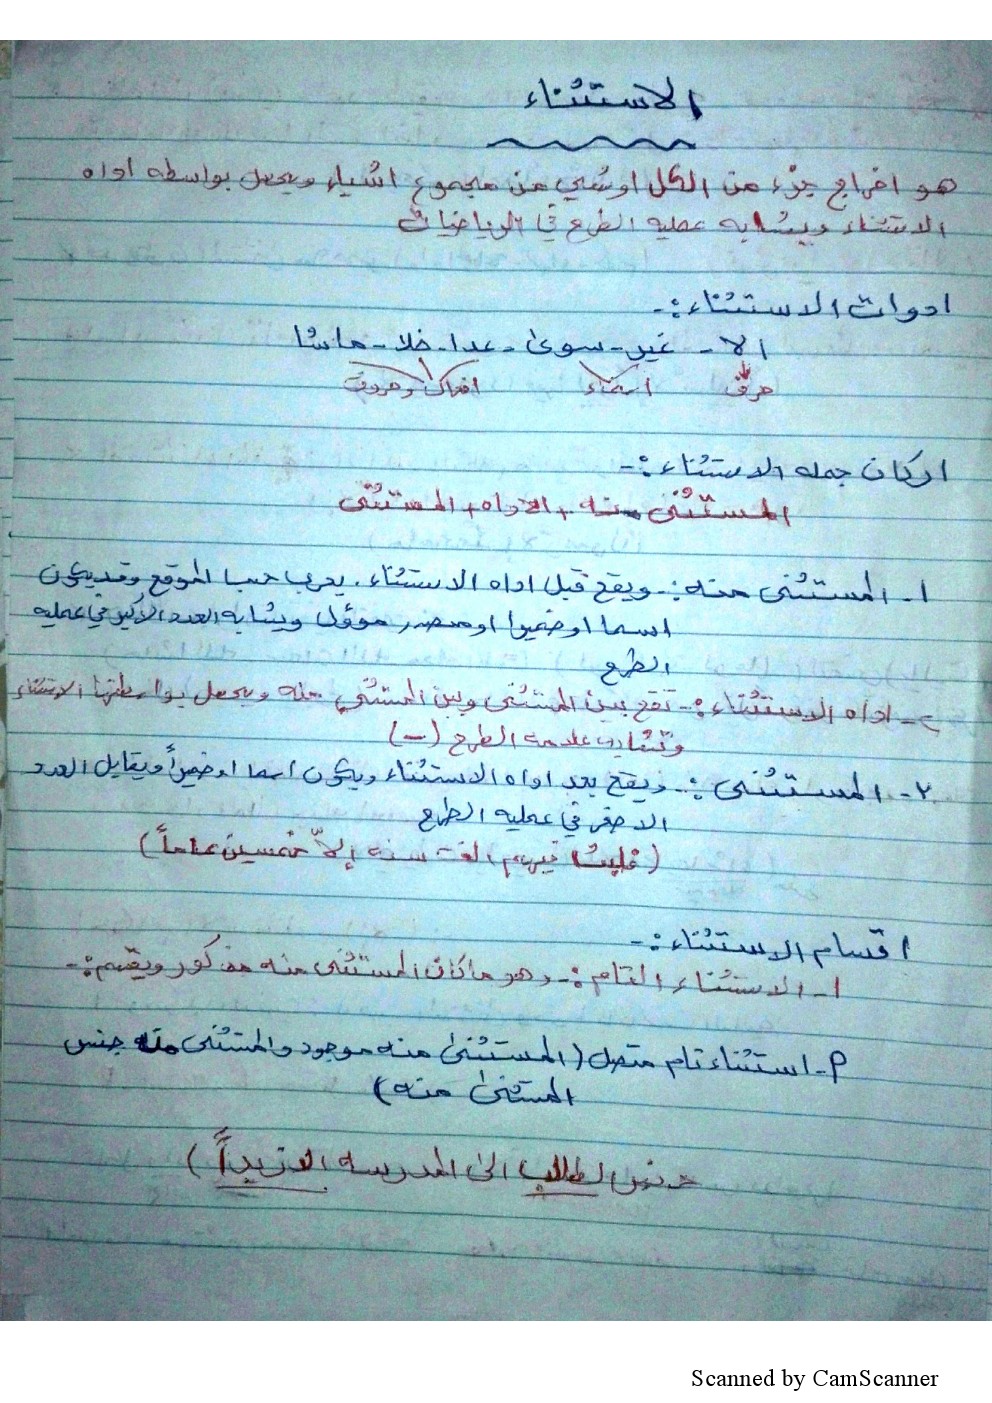 الاستثناء
هو اخراج جزء من الكل او شي من مجموع اشياء ويحصل بواسطه اداه
الاستثناء ويشابه عمليه الطرح في الرياضيات
ادوات الاستثناء :-
الا - غير - سوى - عدا - خلا - حاشا
حرف اسماء افعال وحروف
اركان جمله الاستثناء :-
المستثنى منه + الاداه + المستثنى
١- المستثنى منه :- ويقع قبل اداه الاستثناء . يعرب حسب الموقع وقد يكون
اسما او ضميرا او مصدر مؤول ويشابه العدد الاكبر في عمليه
الطرح
٢- اداه الاستثناء :- تقع بين المستثنى وبين المستثنى منه ويحصل بواسطتها الاستثناء
وتشابه علامه الطرح (-)
٣- المستثنى :- ويقع بعد اداه الاستثناء ويكون اسما او ضميراً ويقابل العدد
الاصغر في عمليه الطرح
(فلبث فيهم الف سنه إلاّ خمسين عاماً)
اقسام الاستثناء :-
١- الاستثناء التام :- وهو ما كان المستثنى منه مذكور ويقسم :-
أ- استثناء تام متصل (المستثنى منه موجود والمستثنى منه جنس
المستثنى منه)
حضر الطلاب الى المدرسه الا زيداً)
Scanned by CamScanner